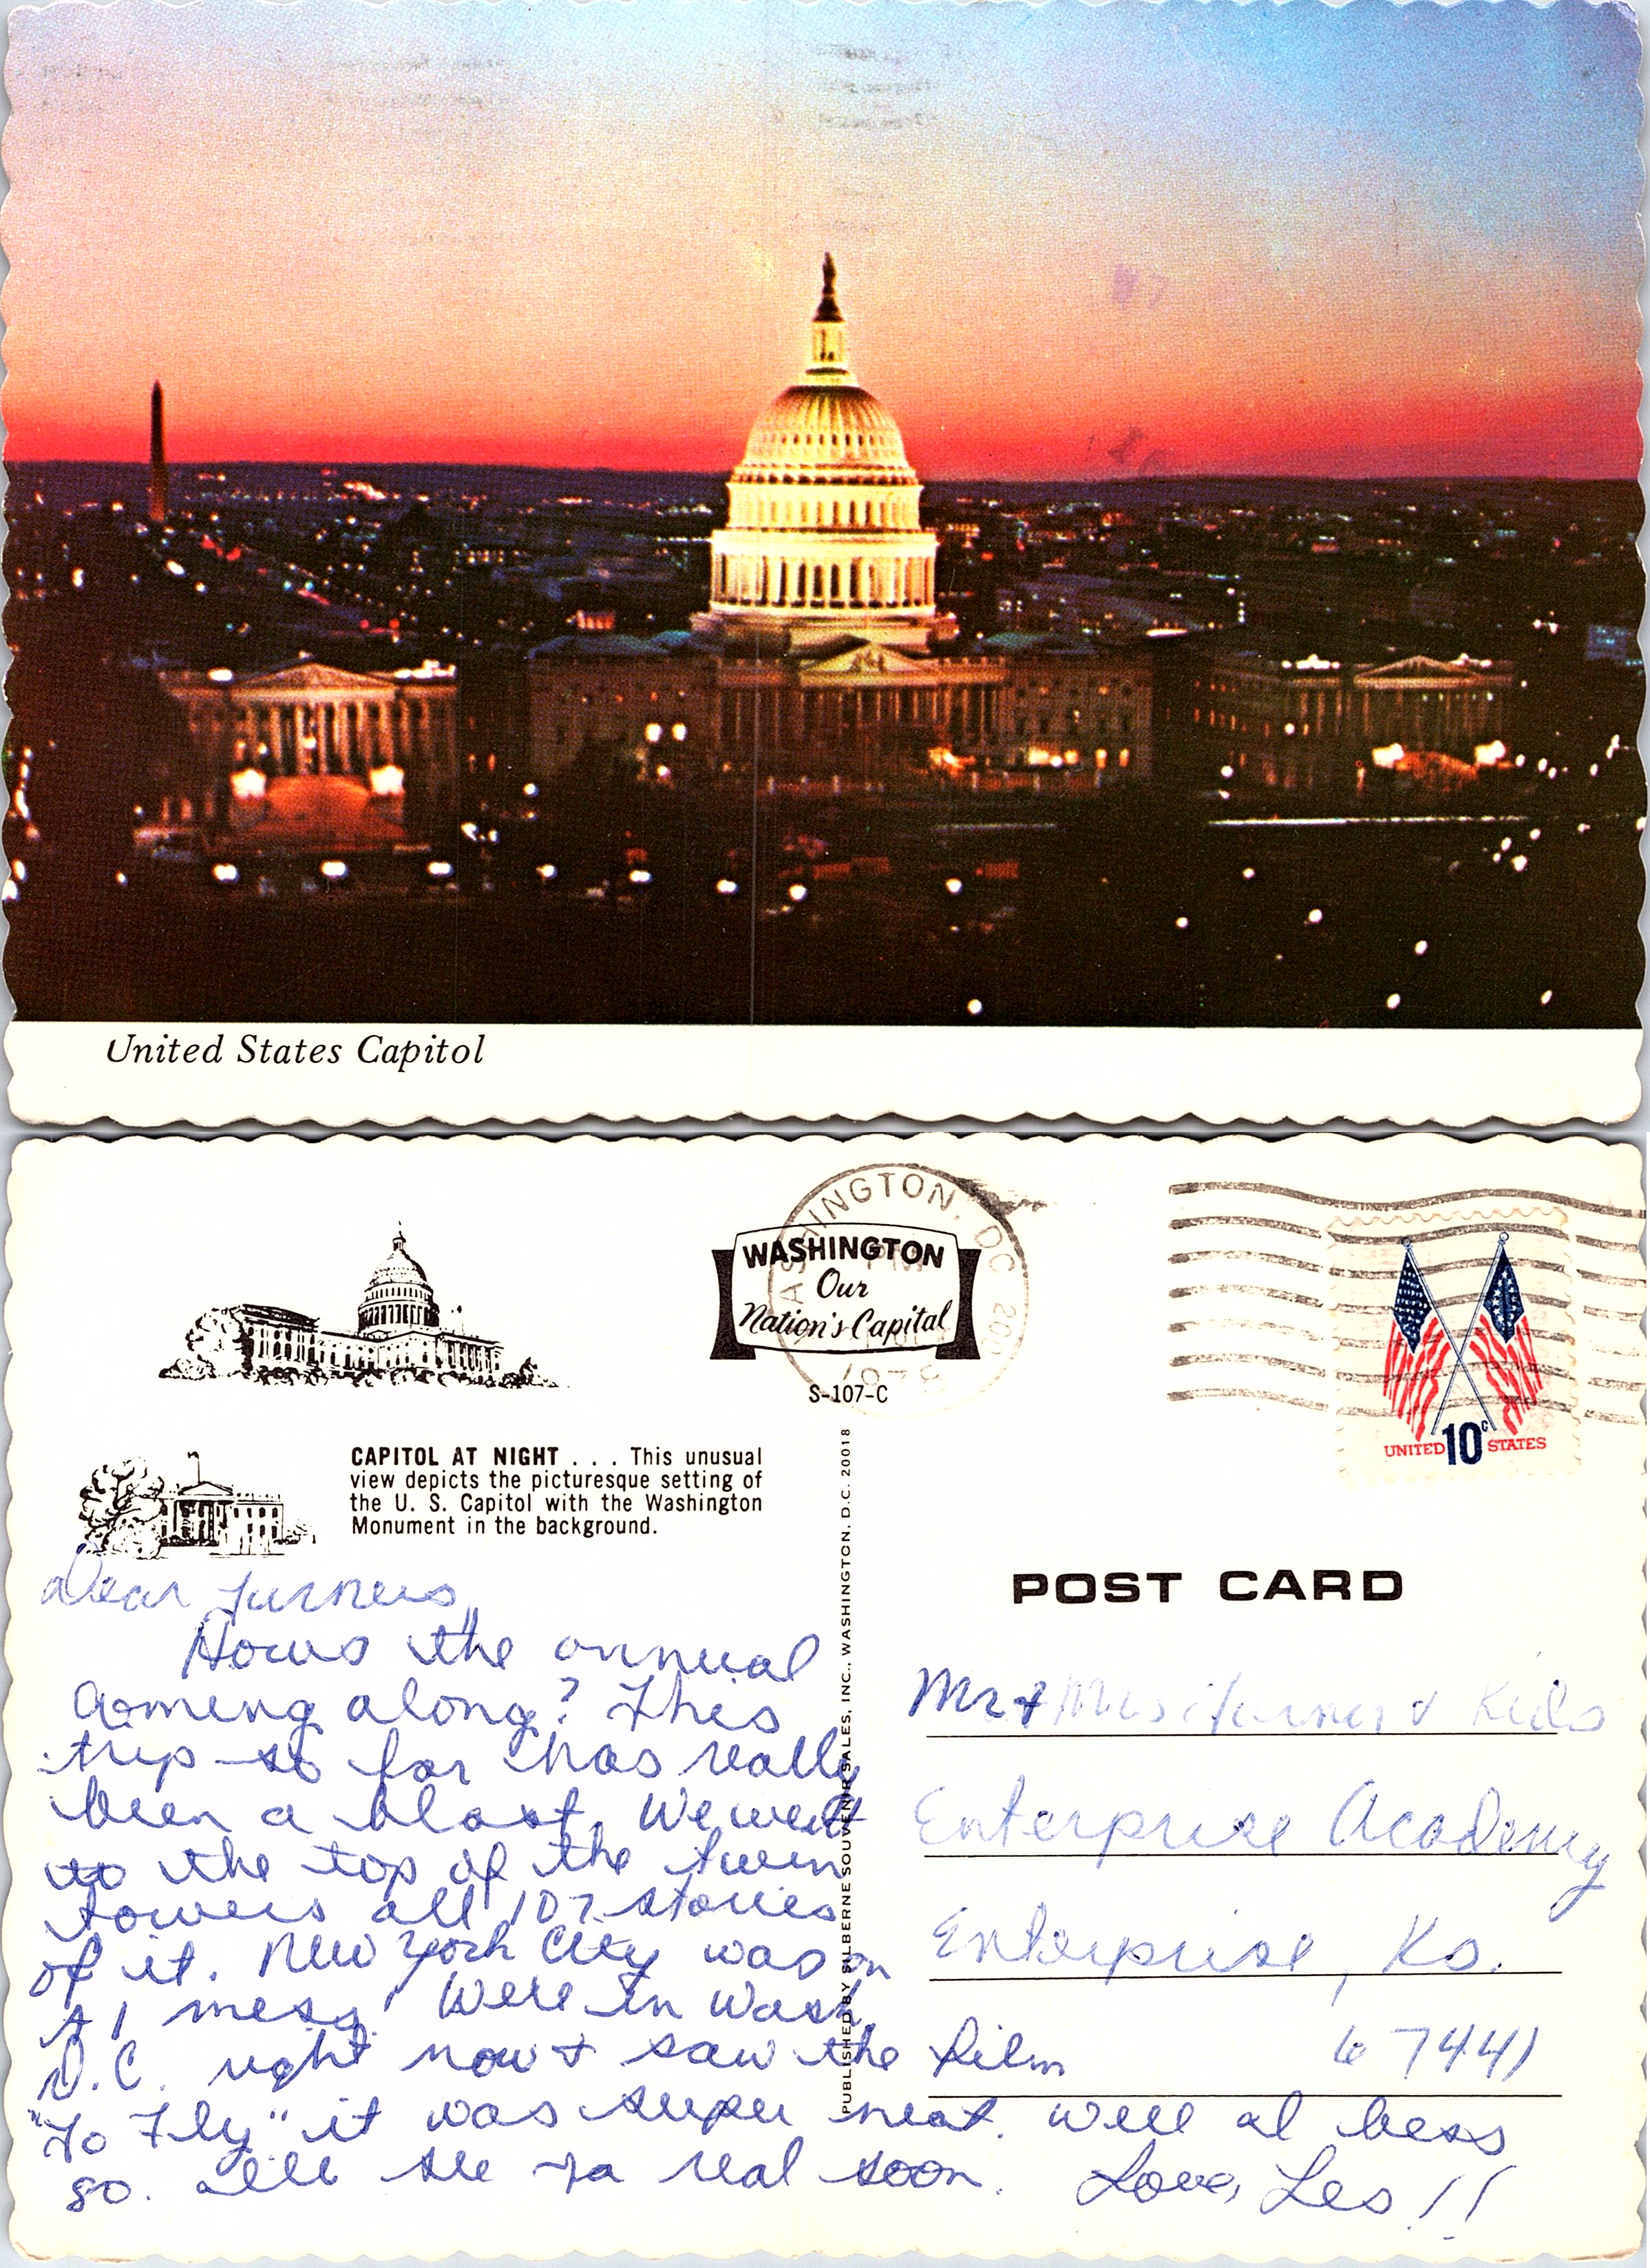 United States Capitol
WASHINGTON, DC 200
WASHINGTON
Our
Nation's Capital
S-107-C
UNITED 10c STATES
CAPITOL AT NIGHT . . . This unusual
view depicts the picturesque setting of
the U. S. Capitol with the Washington
Monument in the background.
PUBLISHED BY SILBERNE SOUVENIR SALES, INC., WASHINGTON, D.C. 20018
POST CARD
Dear Turners,
Hows the annual
coming along? This
trip so far has really
been a blast. We went
to the top of the twin
towers all 107 stories
of it. New York City was
1 mess. Were in Wash.
D.C. right now & saw the film
"To Fly" it was super neat. Well
so. see ya real soon. Love, Les!!
Mr & Mrs Turner & Kids
Enterprise Academy
Enterprise, Ks.
67441